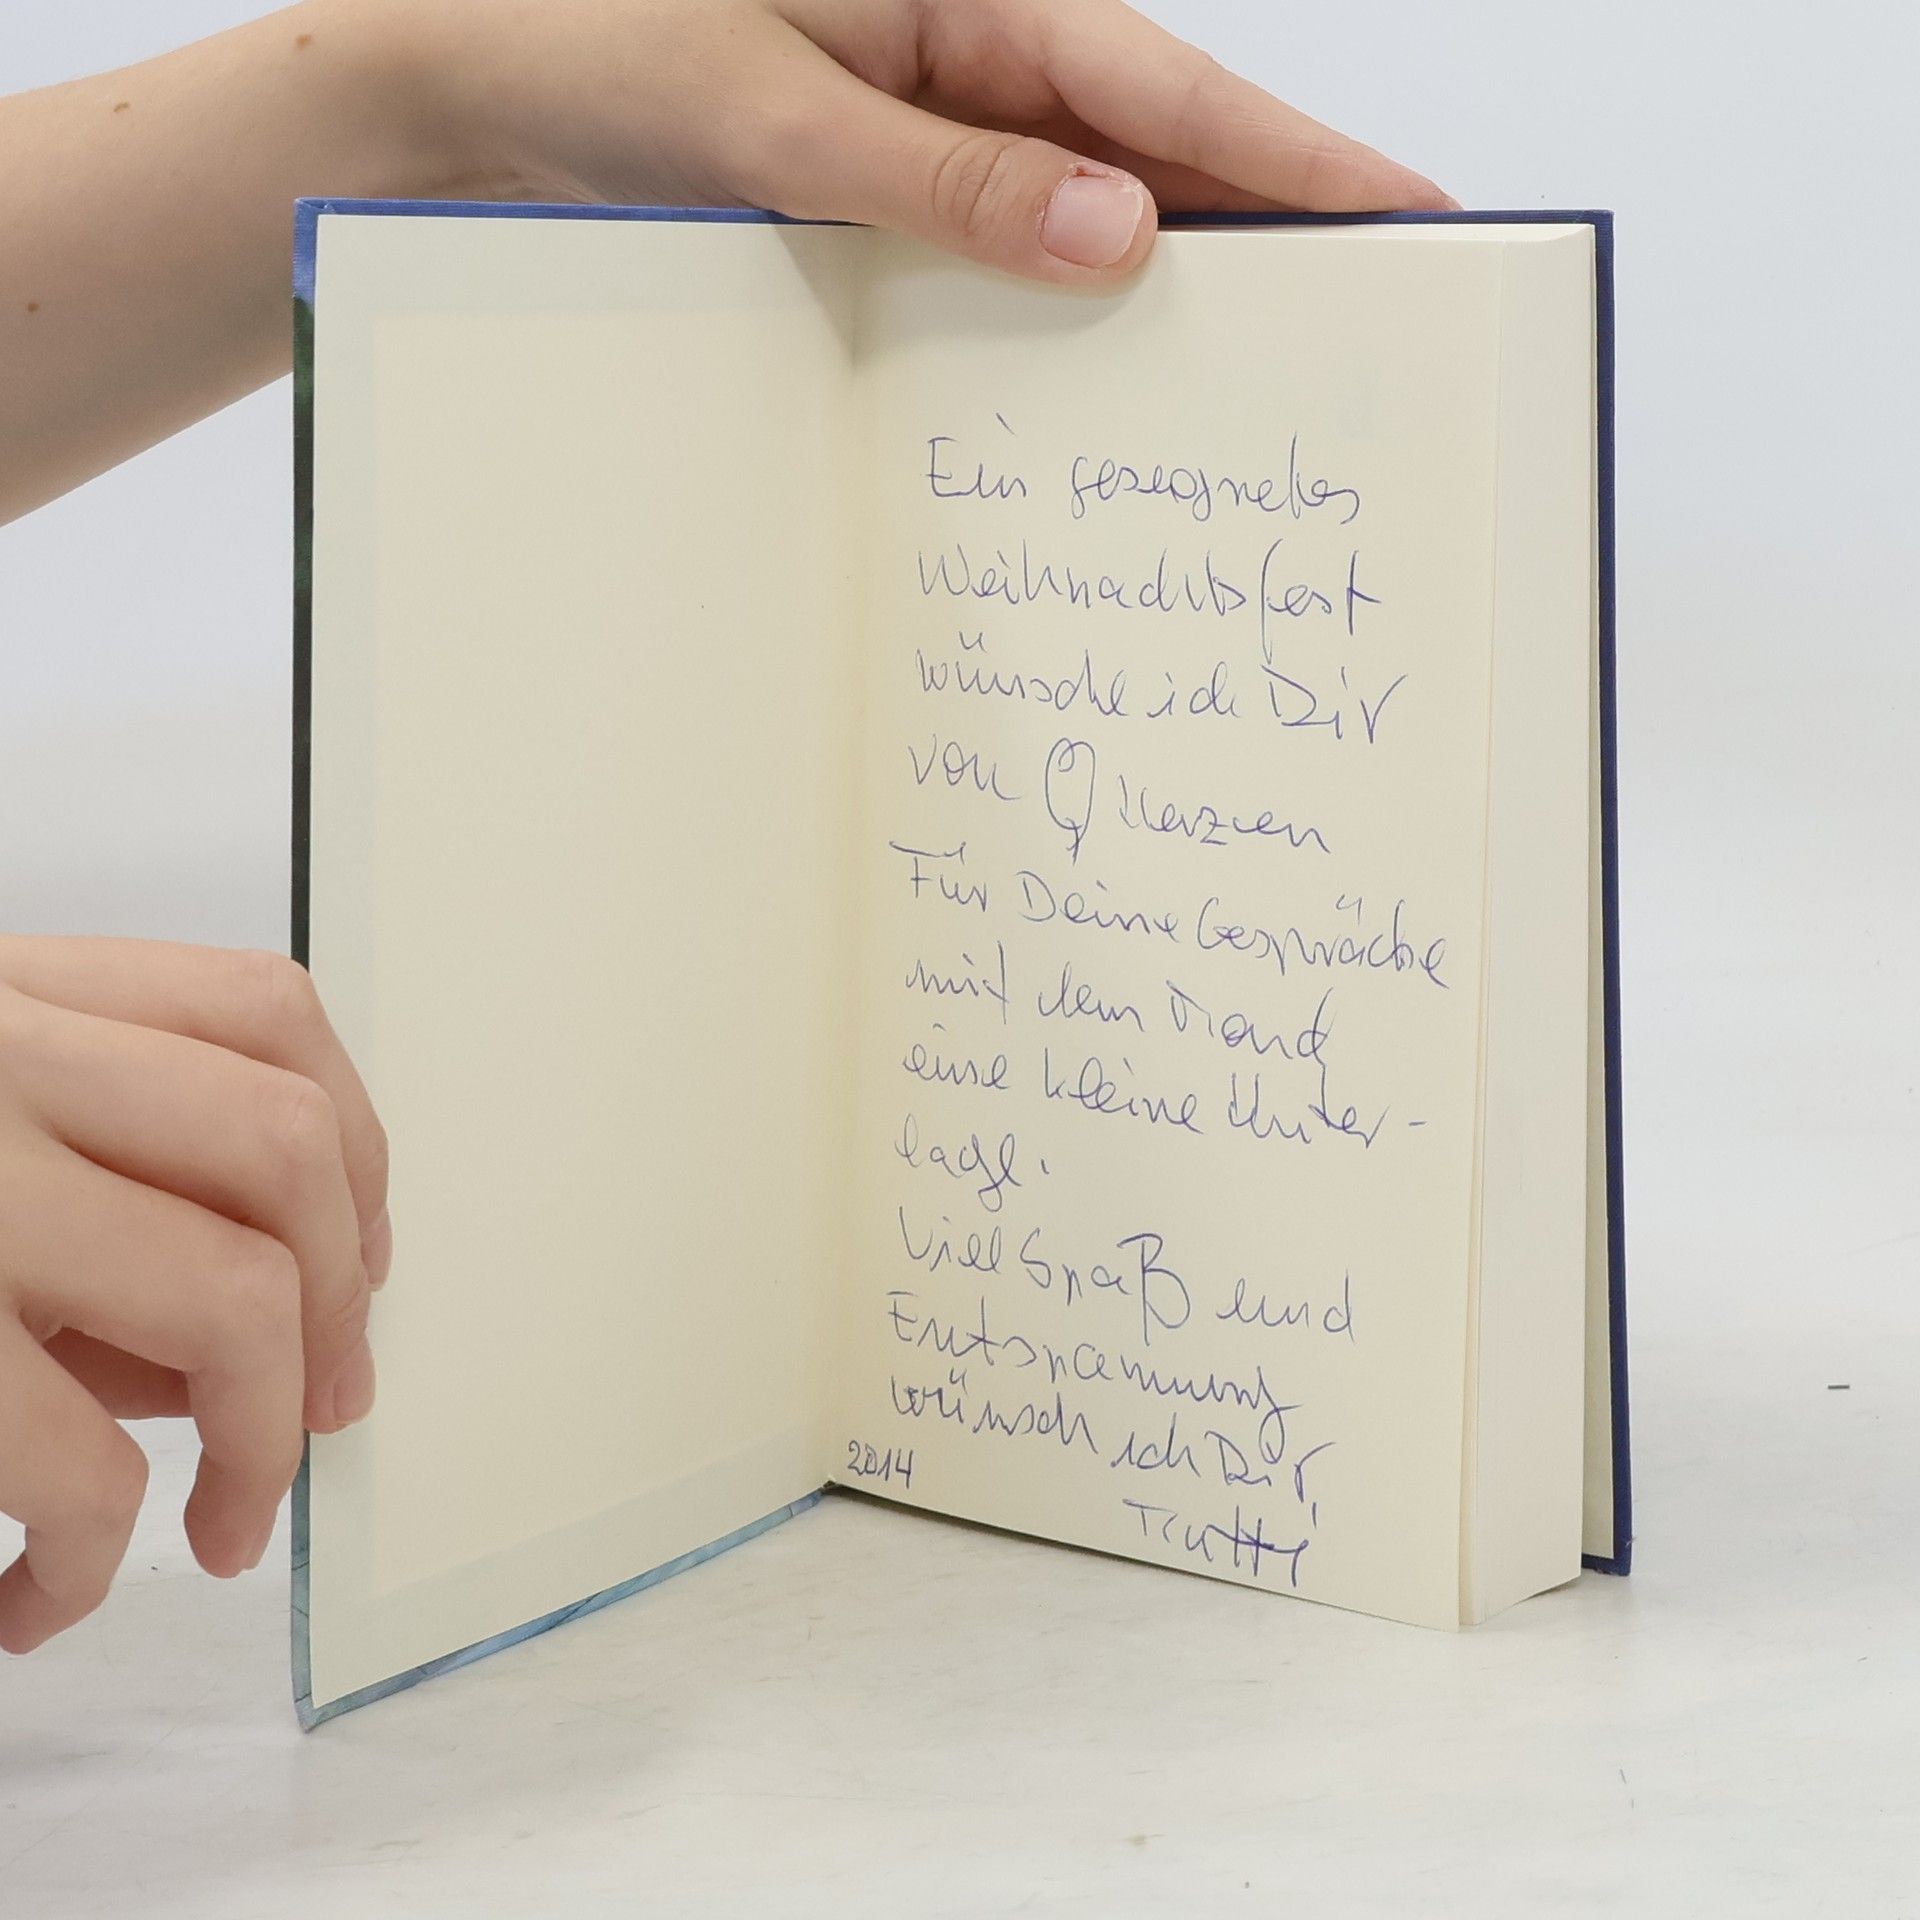 Ein gesegnetes
Weihnachtsfest
wünsche ich Dir
von Herzen
Für Deine Gespräche
mit dem Mond
eine kleine Unter-
lage.
Viel Spaß und
Entspannung
wünsch ich Dir,
2014
Trutti